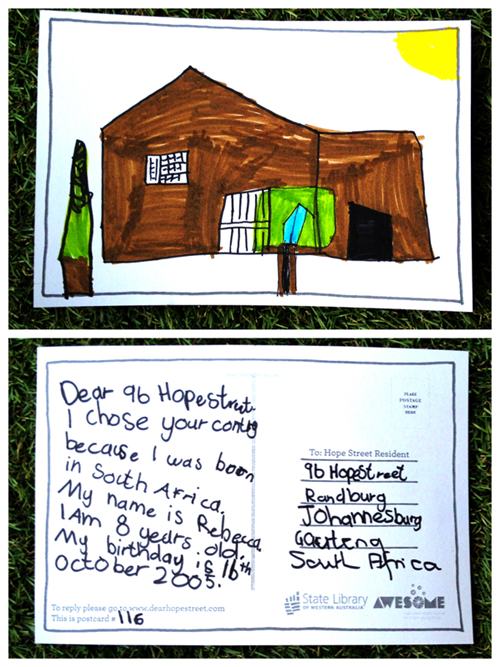 Dear 96 Hope street.
I chose your contry
because I was born
in South Africa.
My name is Rebecca.
I Am 8 years old.
My birthday is 16th
October 2005.
To reply please go to www.dearhopestreet.com
This is postcard # 116
PLACE
POSTAGE
STAMP
HERE
To: Hope Street Resident
96 HopeStreet
Randburg
Johannesburg
Gauteng
South Africa
State Library
OF WESTERN AUSTRALIA
AWESOME